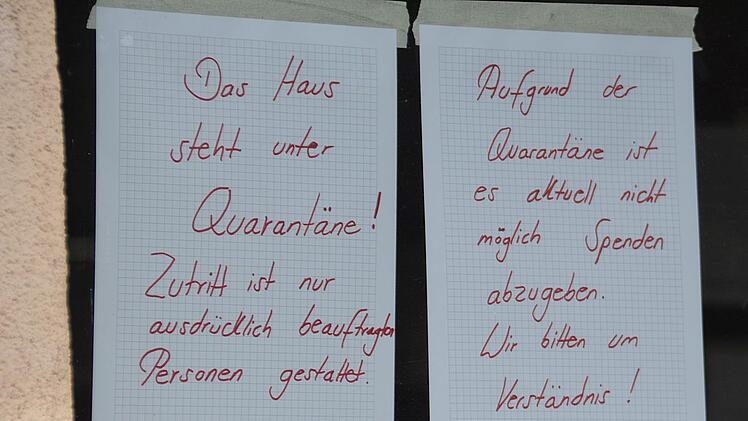 Das Haus
steht unter
Quarantäne!
Zutritt ist nur
ausdrücklich beauftragten
Personen gestattet.
Aufgrund der
Quarantäne ist
es aktuell nicht
möglich Spenden
abzugeben.
Wir bitten um
Verständnis!